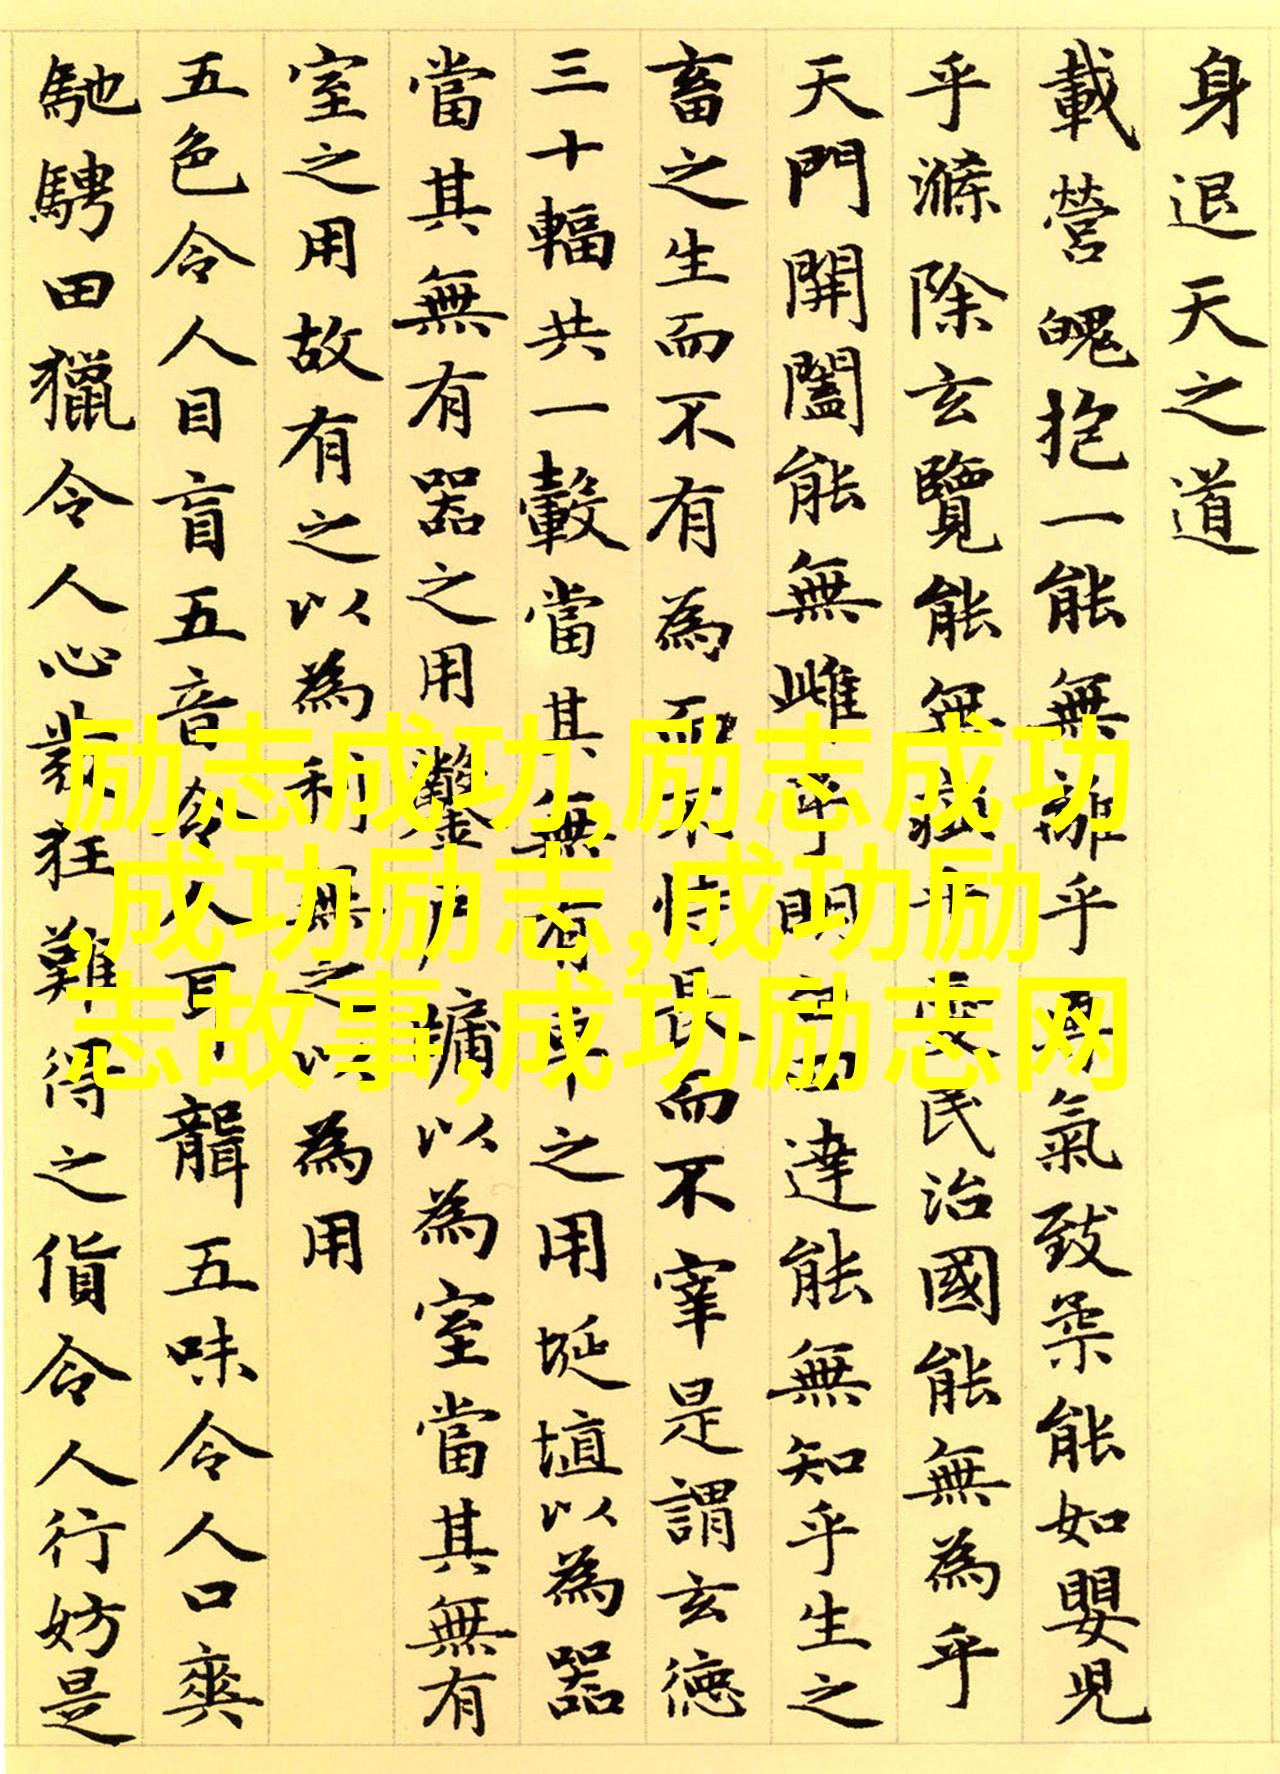 身退天之道
載營魄抱一能無離乎專氣致柔能如嬰兒
乎滌除玄覽能無疵乎愛民治國能無為乎
天門開闔能無雌乎明白四達能無知乎生之
畜之生而不有為而不恃長而不宰是謂玄德
三十輻共一轂當其無有車之用埏埴以為器
當其無有器之用鑿戶牖以為室當其無有
室之用故有之以為利無之以為用
五色令人目盲五音令人耳聾五味令人口爽
馳騁田獵令人心發狂難得之貨令人行妨是
励志成功,励志成功
,成功励志,成功励
志故事,成功励志网